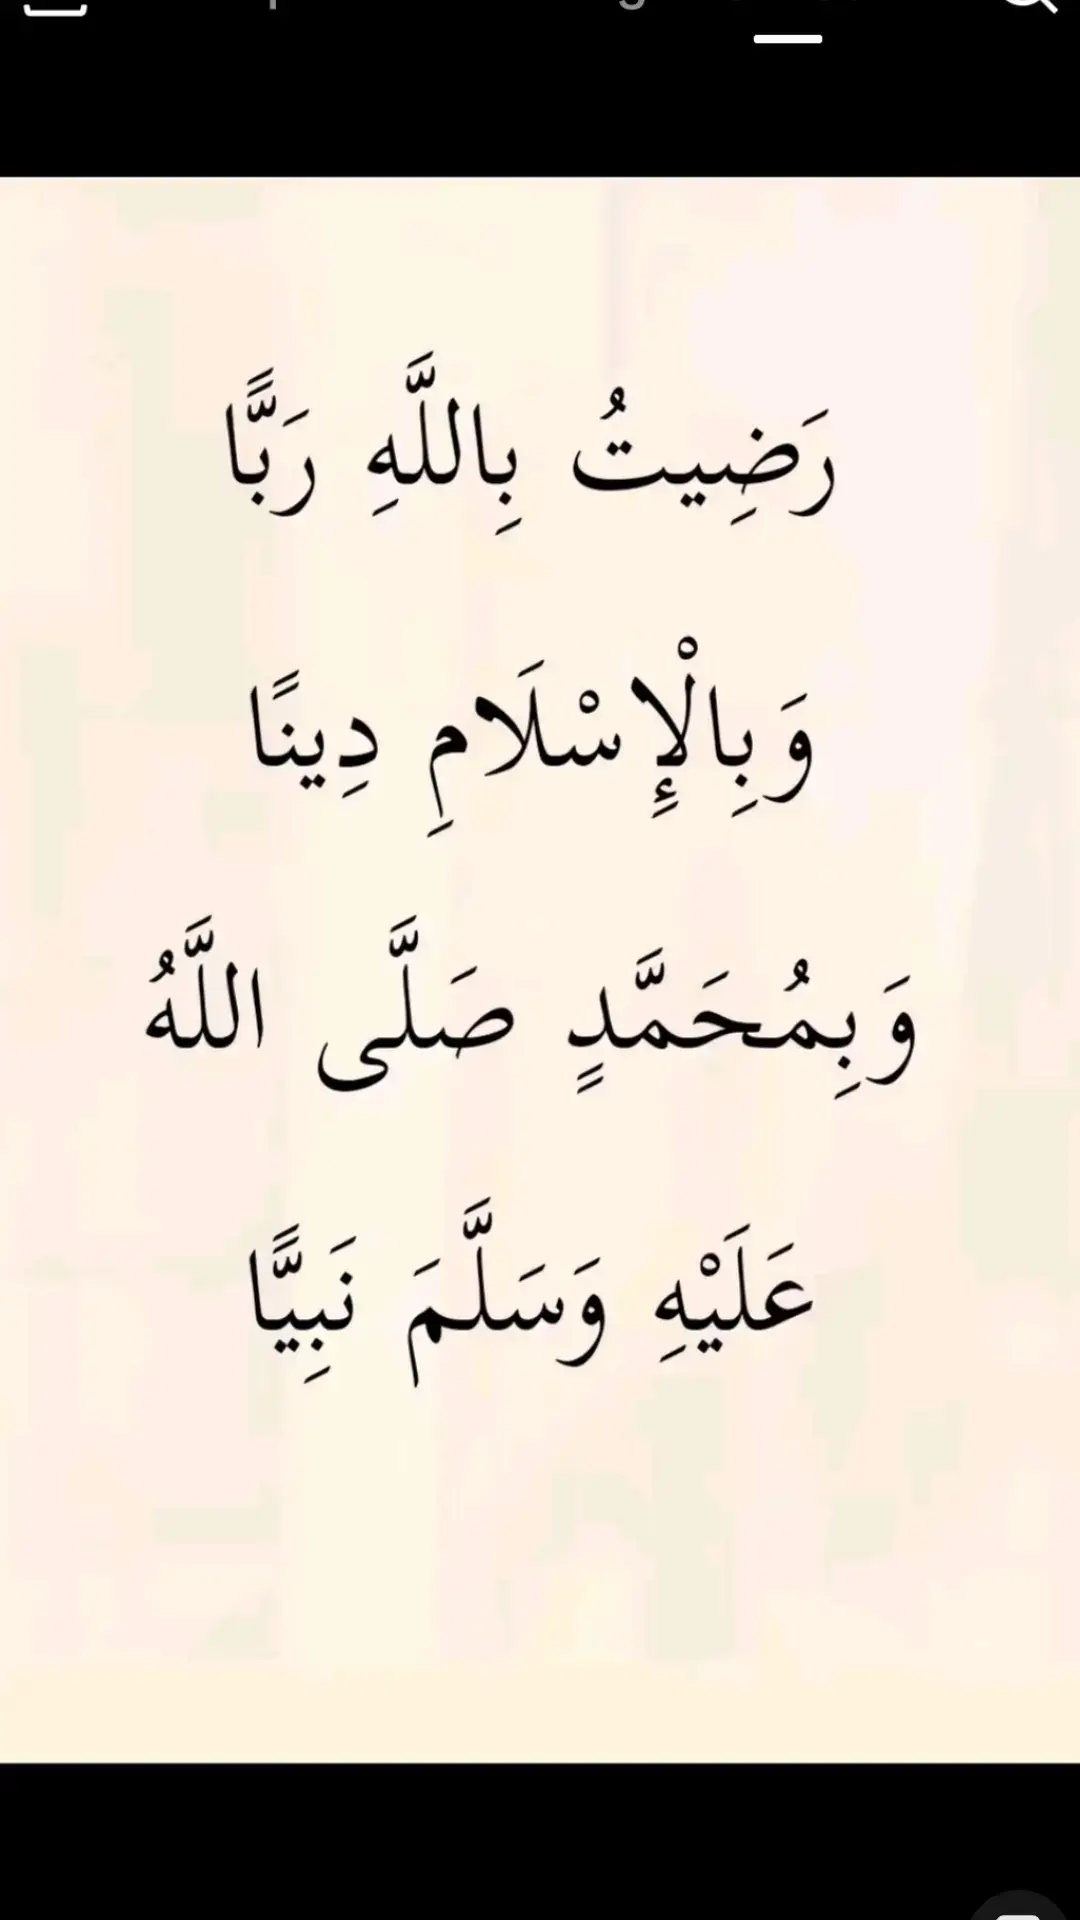 رَضِيتُ بِاللَّهِ رَبًّا
وَبِالْإِسْلَامِ دِينًا
وَبِمُحَمَّدٍ صَلَّى اللَّهُ
عَلَيْهِ وَسَلَّمَ نَبِيًّا